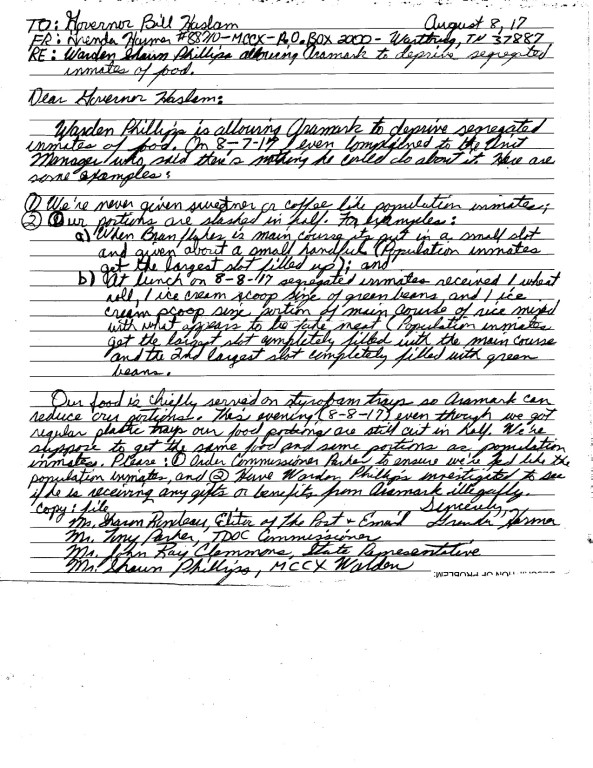 TO: Governor Bill Haslam August 8, 17
FR: Grenda Harmer #88710-MCCX-P.O. BOX 2000 - Wartburg, TN 37887
RE: Warden Shawn Phillips allowing Aramark to deprive segregated
inmates of food.
Dear Governor Haslam:
Warden Phillips is allowing Aramark to deprive segregated
inmates of food. On 8-7-17 I even complained to the Unit
Manager who said there's nothing he could do about it. Here are
some examples:
① We're never given sweetner or coffee like population inmates;
② Our portions are slashed in half. For Examples:
a) When Bran flakes is main course its put in a small slot
and given about a small handful (Population inmates
get the largest slot filled up); and
b) At lunch on 8-8-17 segregated inmates received 1 wheat
roll, 1 ice cream scoop size of green beans, and 1 ice
cream scoop size portion of main course of rice mixed
with what appears to be fake meat (Population inmates
get the largest slot completely filled with the main course
and the 2nd largest slot completely filled with green
beans.
Our food is chiefly served on styrofoam trays so Aramark can
reduce our portions. This evening (8-8-17) even though we got
regular plastic trays our food portions are still cut in half. We're
suppose to get the same food and same portions as population
inmates. Please: ① Order Commissioner Parker to ensure we're fed like the
population inmates, and ② Have Warden Phillips investigated to see
if he is receiving any gifts or benefits from Aramark illegally.
copy: file Sincerely,
Ms. Sharon Rondeau, Editor of The Post & Email Grenda Harmer
Mr. Tony Parker, TDOC Commissioner
Mr. John Ray Clemmons, State Representative
Mr. Shawn Phillips, MCCX Warden